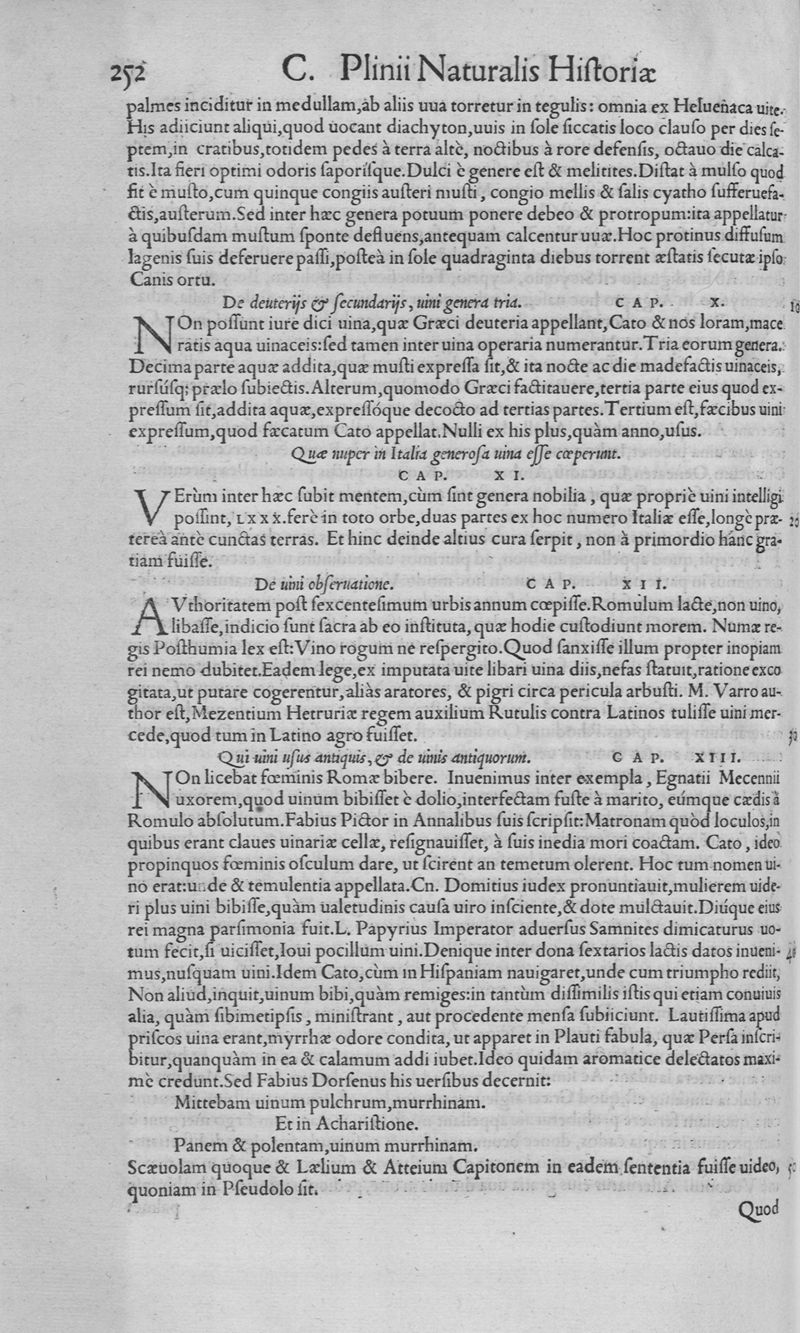 252 C. Plinii Naturalis Hiſtoriæ
palmes inciditur in medullam,ab aliis uua torretur in tegulis: omnia ex Heluenaca uite.
His adiiciunt aliqui,quod uocant diachyton,uuis in ſole ſiccatis loco clauſo per dies ſe-
ptem,in cratibus,totidem pedes à terra altè, noctibus à rore defenſis, octauo die calca-
tis.Ita fieri optimi odoris ſaporiſque.Dulci è genere eſt & melitites.Diſtat à mulſo quod
fit è muſto,cum quinque congiis auſteri muſti, congio mellis & ſalis cyatho ſufferuefa-
ctis,auſterum.Sed inter hæc genera potuum ponere debeo & protropum:ita appellatur
à quibuſdam muſtum ſponte defluens,antequam calcentur uuæ.Hoc protinus diffuſum
lagenis ſuis deferuere paſſi,poſteà in ſole quadraginta diebus torrent æſtatis ſecutæ ipſo
Canis ortu.
De deuterijs & ſecundarijs, uini genera tria. CAP. X. 10
NOn poſſunt iure dici uina,quæ Græci deuteria appellant,Cato & nos loram,mace
ratis aqua uinaceis:ſed tamen inter uina operaria numerantur.Tria eorum genera.
Decima parte aquæ addita,quæ muſti expreſſa ſit,& ita nocte ac die madefactis uinaceis,
rurſúſq; prælo ſubiectis.Alterum,quomodo Græci factitauere,tertia parte eius quod ex-
preſſum ſit,addita aquæ,expreſſóque decocto ad tertias partes.Tertium eſt,fæcibus uini
expreſſum,quod fæcatum Cato appellat.Nulli ex his plus,quàm anno,uſus.
Quæ nuper in Italia generoſa uina eſſe cœperunt.
CAP. XI.
VErùm inter hæc ſubit mentem,cùm ſint genera nobilia, quæ propriè uini intelligi
poſſint, LXXX.ferè in toto orbe,duas partes ex hoc numero Italiæ eſſe,longè præ- 20
tereà antè cunctas terras. Et hinc deinde altius cura ſerpit, non à primordio hanc gra-
tiam fuiſſe.
De uini obſeruatione. CAP. XII.
AVthoritatem poſt ſexcenteſimum urbis annum cœpiſſe.Romulum lacte,non uino,
libaſſe,indicio ſunt ſacra ab eo inſtituta, quæ hodie cuſtodiunt morem. Numæ re-
gis Poſthumia lex eſt:Vino rogum ne reſpergito.Quod ſanxiſſe illum propter inopiam
rei nemo dubitet.Eadem lege,ex imputata uite libari uina diis,nefas ſtatuit,ratione exco
gitata,ut putare cogerentur,aliàs aratores, & pigri circa pericula arbuſti. M. Varro au-
thor eſt,Mezentium Hetruriæ regem auxilium Rutulis contra Latinos tuliſſe uini mer-
cede,quod tum in Latino agro fuiſſet. 30
Qui uini uſus antiquis, & de uinis antiquorum. CAP. XIII.
NOn licebat fœminis Romæ bibere. Inuenimus inter exempla, Egnatii Mecennii
uxorem,quod uinum bibiſſet è dolio,interfectam fuſte à marito, eúmque cædis à
Romulo abſolutum.Fabius Pictor in Annalibus ſuis ſcripſit:Matronam quòd loculos,in
quibus erant claues uinariæ cellæ, reſignauiſſet, à ſuis inedia mori coactam. Cato, ideo
propinquos fœminis oſculum dare, ut ſcirent an temetum olerent. Hoc tum nomen ui-
no erat:unde & temulentia appellata.Cn. Domitius iudex pronuntiauit,mulierem uide-
ri plus uini bibiſſe,quàm ualetudinis cauſa uiro inſciente,& dote mulctauit.Diúque eius
rei magna parſimonia fuit.L. Papyrius Imperator aduerſus Samnites dimicaturus uo-
tum fecit,ſi uiciſſet,Ioui pocillum uini.Denique inter dona ſextarios lactis datos inueni- 40
mus,nuſquam uini.Idem Cato,cùm in Hiſpaniam nauigaret,unde cum triumpho rediit,
Non aliud,inquit,uinum bibi,quàm remiges:in tantùm diſſimilis iſtis qui etiam conuiuis
alia, quàm ſibimetipſis, miniſtrant, aut procedente menſa ſubiiciunt. Lautiſſima apud
priſcos uina erant,myrrhæ odore condita, ut apparet in Plauti fabula, quæ Perſa inſcri-
bitur,quanquàm in ea & calamum addi iubet.Ideo quidam aromatice delectatos maxi-
mè credunt.Sed Fabius Dorſenus his uerſibus decernit:
Mittebam uinum pulchrum,murrhinam.
Et in Achariſtione.
Panem & polentam,uinum murrhinam.
Scæuolam quoque & Lælium & Atteium Capitonem in eadem ſententia fuiſſe uideo,
quoniam in Pſeudolo ſit.
Quod